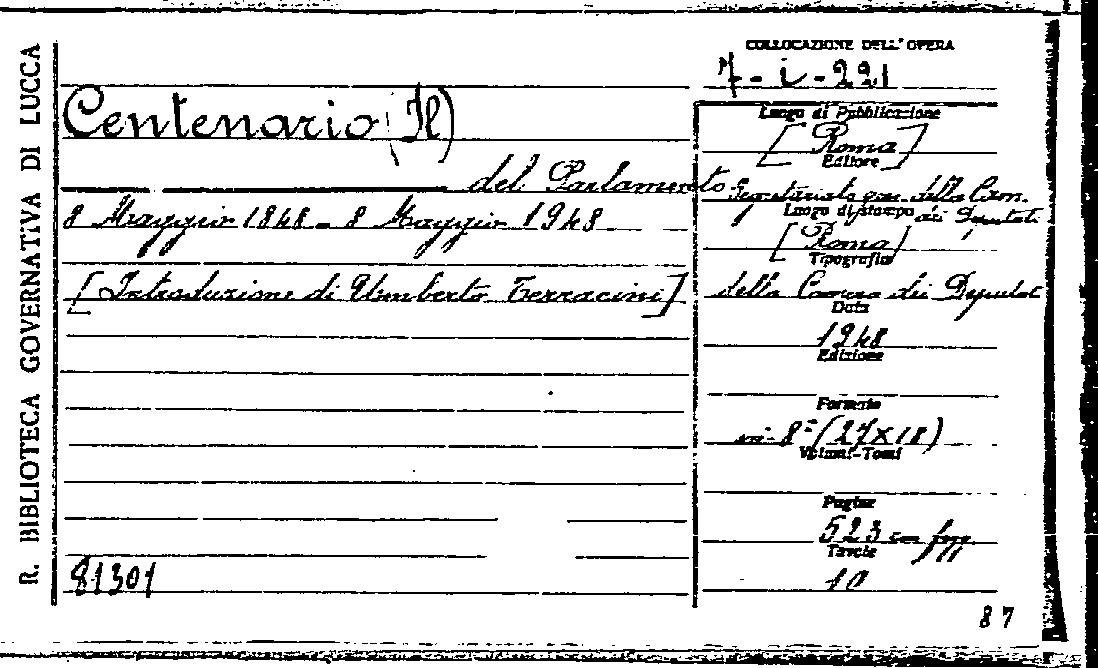 R. BIBLIOTECA GOVERNATIVA DI LUCCA
COLLOCAZIONE DELL'OPERA
7-i-221
Centenario (Il)
del Parlamento
8 Maggio 1848 - 8 Maggio 1948
[Introduzione di Umberto Terracini]
81301
Luogo di Pubblicazione
[Roma]
Editore
Segretariato gen. della Cam.
dei Deputati
Luogo di stampa
[Roma]
Tipografia
della Camera dei Deputat
Data
1948
Edizione
Formato
in-8° (27x18)
Volumi-Tomi
Pagine
523 con figg.
Tavole
10
87